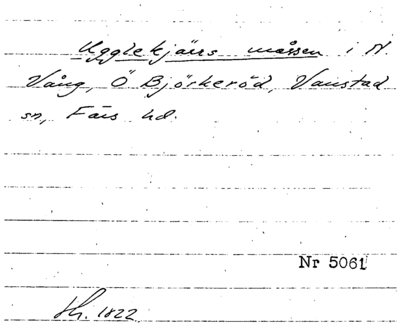 Ugglekjärrs mossen i N
Vång, Ö Björkeröd, Vanstad
sn, Färs hd.
Nr 5061
Sk. 1822